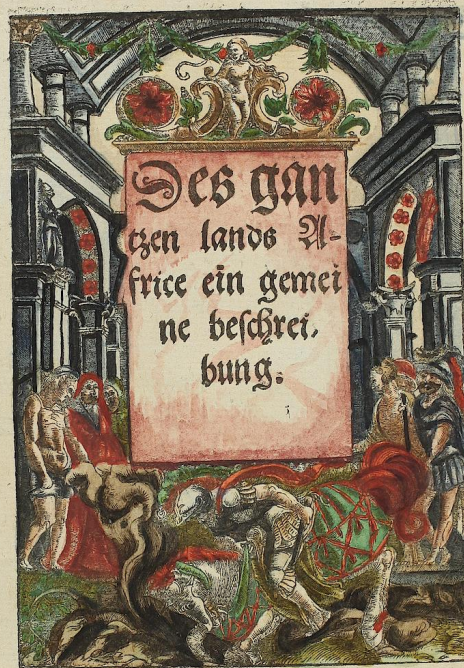 Des gan
tzen lands A-
frice ein gemei
ne beschrei.
bung.